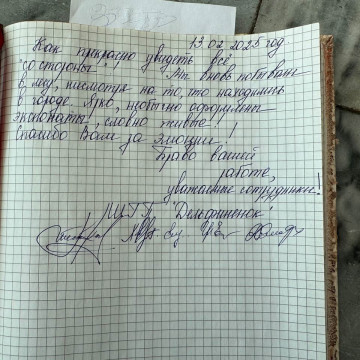 13.02.2025 год.
Как прекрасно увидеть всё
со стороны! Мы вновь побывали
в лесу, несмотря на то, что находились
в городе. Ярко, необычно оформлены
экспонаты, словно живые!
Спасибо Вам за эмоции!
Браво вашей
работе,
уважаемые сотрудники!
"Дельфиненок"